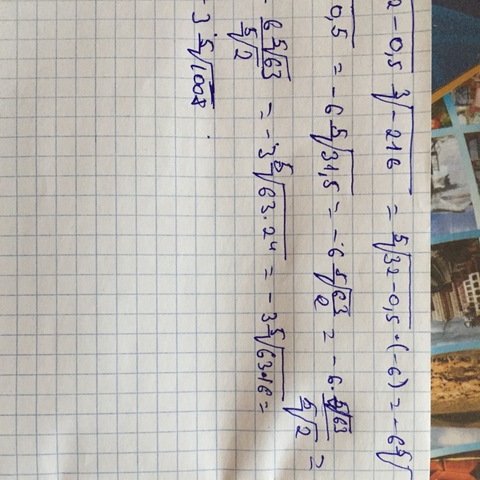 2-0,5 ∛-216 = ⁵√32-0,5 ·(-6) = -6 ⁵√
0,5 = -6 ⁵√31,5 = -6 ⁵√63/2 = -6· ⁵√63/⁵√2 =
6 ⁵√63/⁵√2 = -3 ⁵√63·2⁴ = -3 ⁵√63·16 =
-3 ⁵√1008